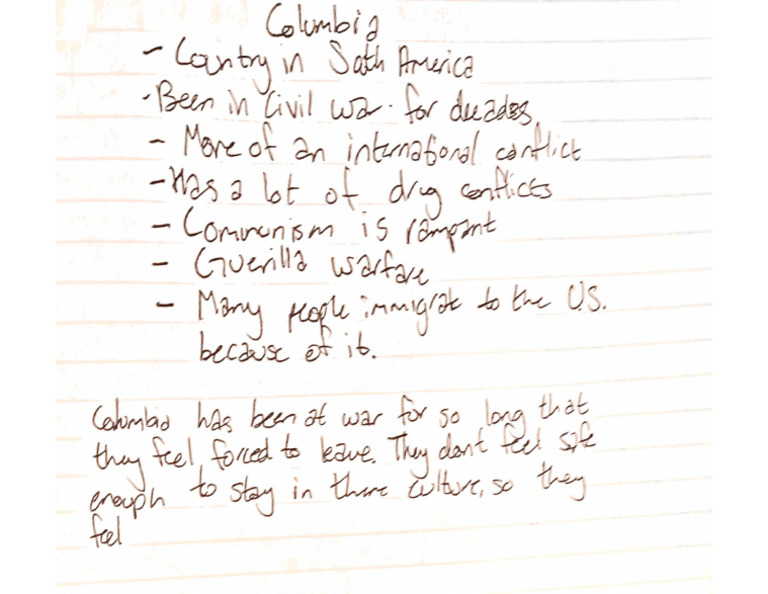 Columbia
- Country in Soth America
- Been in Civil war for decades.
- More of an international conflict
- Has a lot of drug conflicts
- Communism is rampant
- Guerilla warfare
- Many people immigrat to the U.S.
because of it.
Columbia has been at war for so long that
they feel forced to leave. They dont feel safe
enough to stay in there culture, so they
feel